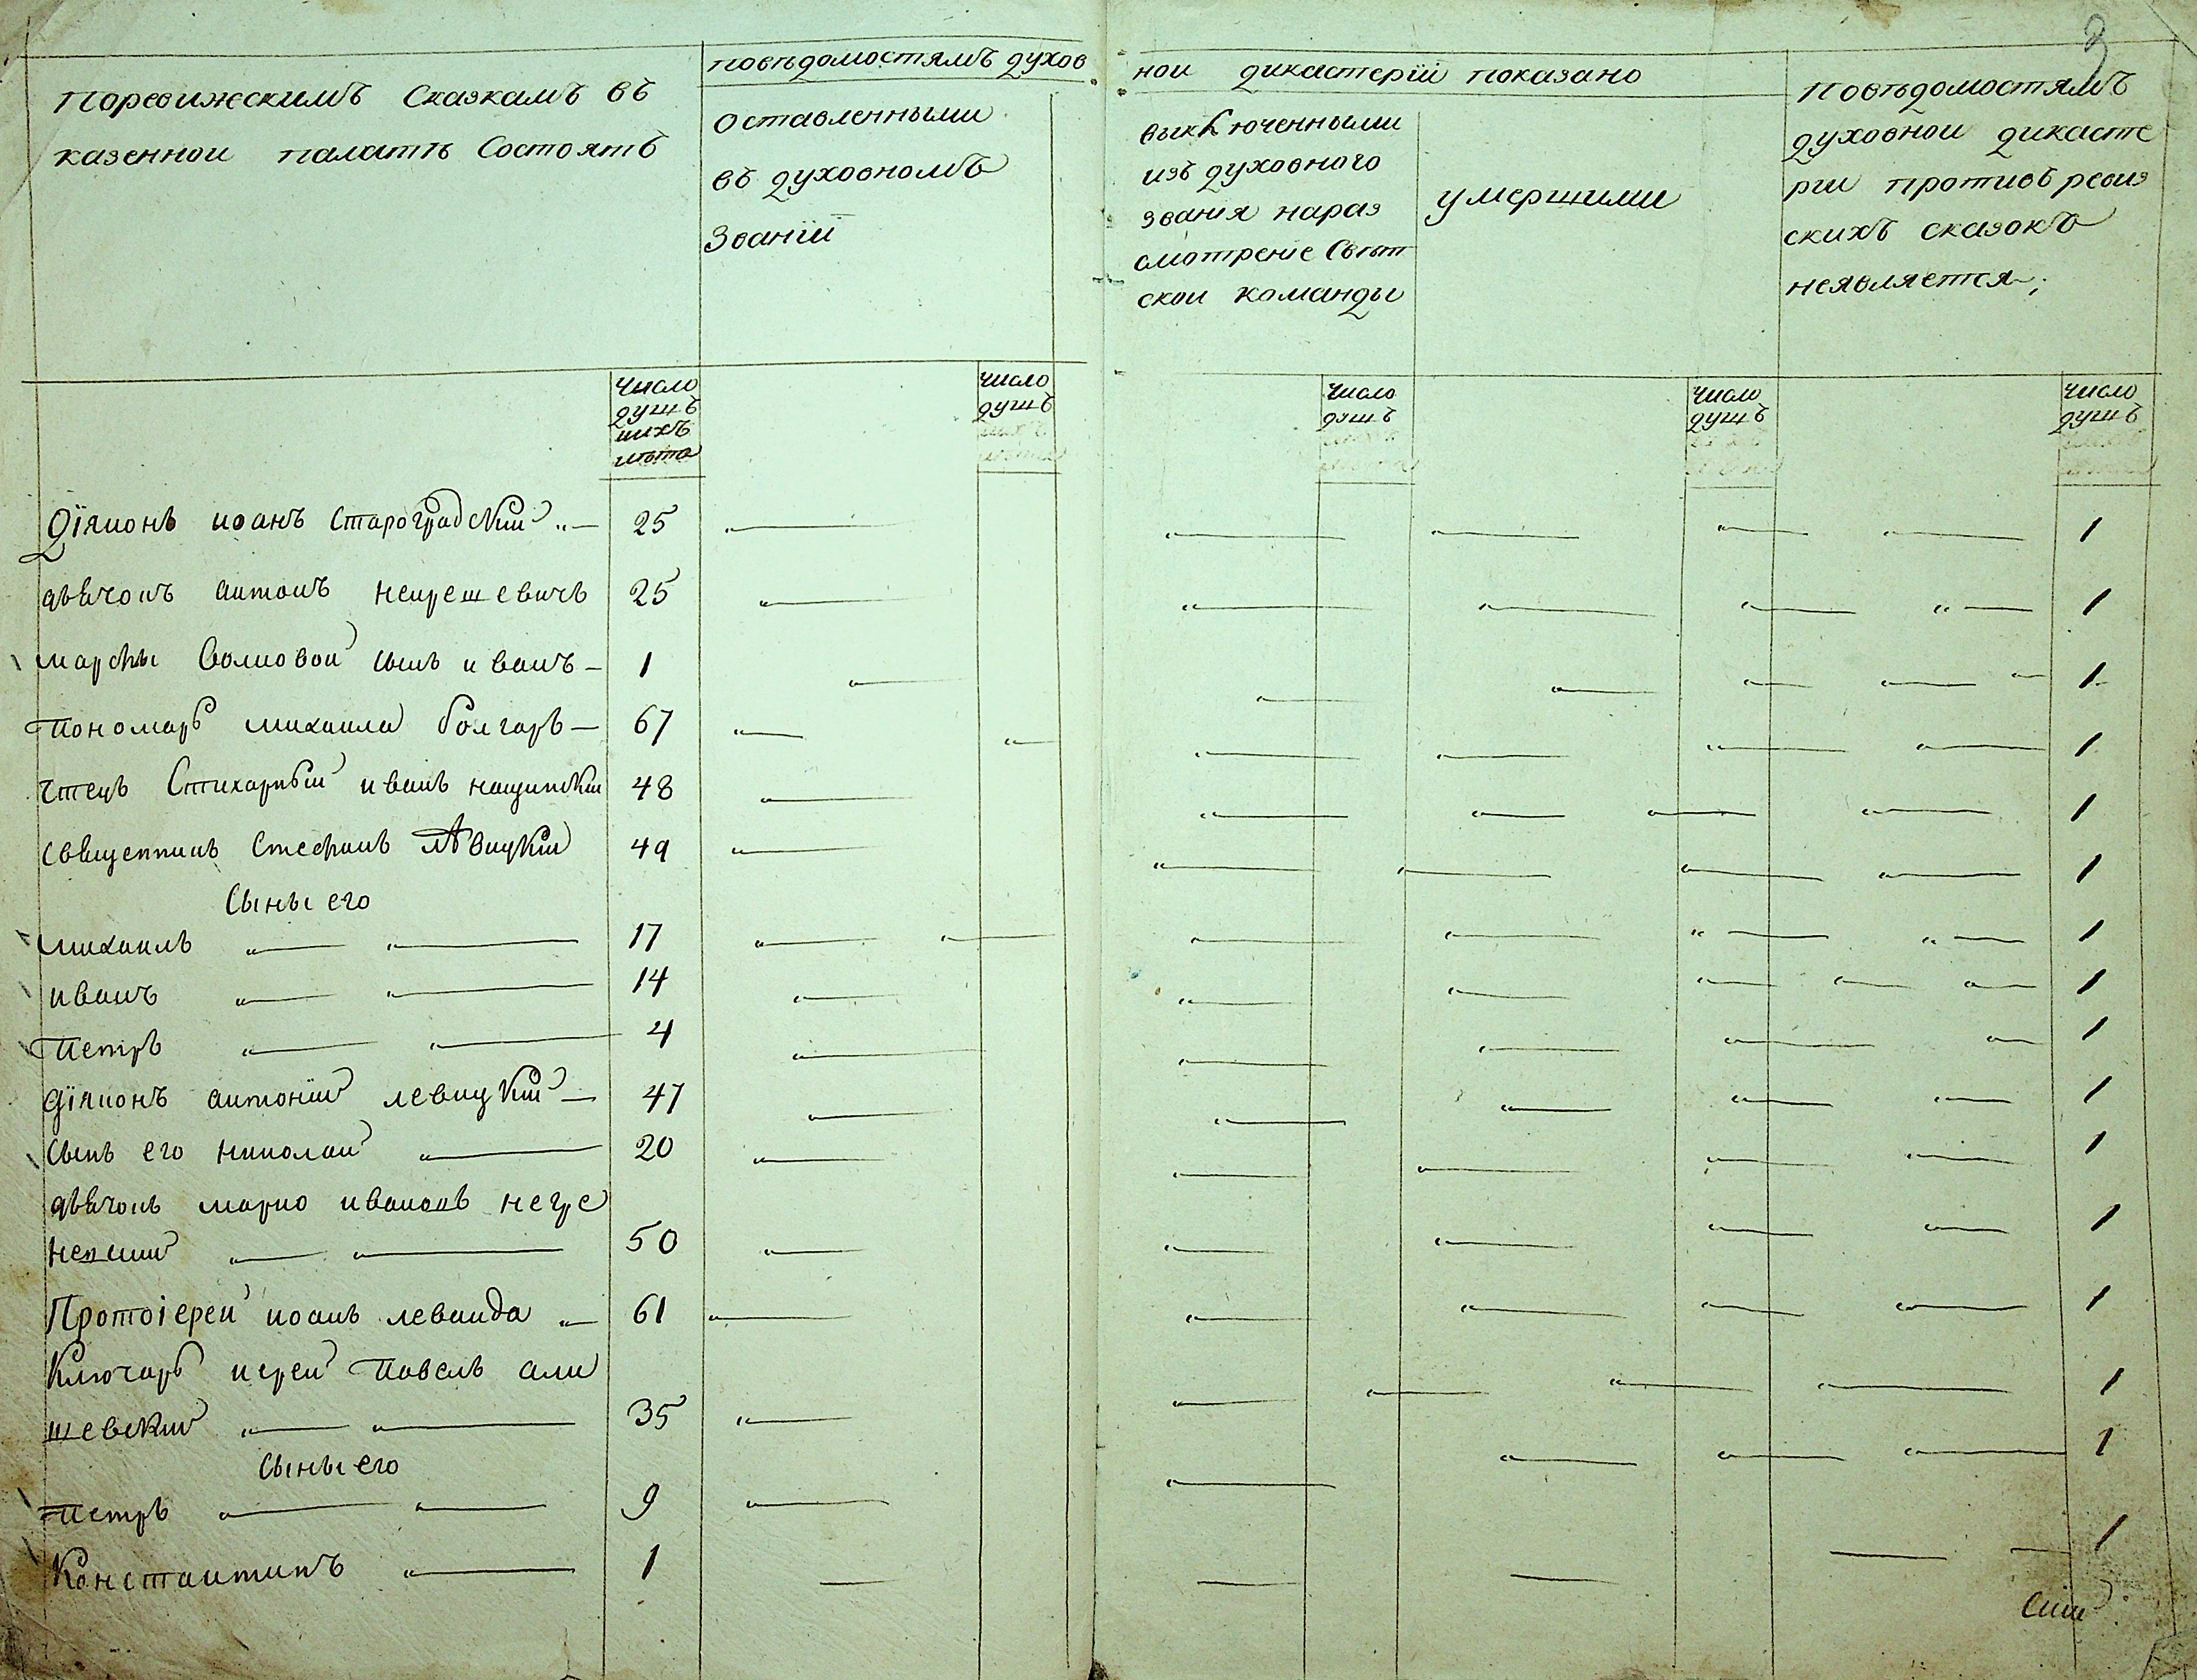 3
Поревижскимъ Сказкамъ въ
казеннои палатѣ Состоятъ
повѣдомостямъ духов
нои дикастерїи показано
оставленными
въ духовномъ
Званїи
выключенными
изъ духовного
званїя нараз
смотренїе Свѣт
скои команды
умершими
Повѣдомостямъ
духовнои дикасте
рїи противъ ревиз
скихъ сказокъ
неявляется;
число душъ ихъ лѣта
число душъ
число душъ
число душъ
число душъ
Дїяконъ иоанъ Староградскїи 25 1
дьячокъ антонъ негрешевичъ 25 1
марфы Волковои сынъ иванъ 1 1
пономарь михаила болгаръ 67 1
чтецъ Стихарныи иванъ нащинскїи 48 1
священникъ Стефанъ лѣвицкїи 49 1
Сыны его
михаилъ 17 1
иванъ 14 1
Петръ 4 1
дїяконъ антонїи левицкїи 47 1
сынъ его николаи 20 1
дьячокъ марко ивановъ
50 1
Протоіереи иоанъ леванда 61 1
Ключарь иереи Павелъ али
шевскїи 35 1
Сыны его
петръ 9 1
Константинъ 1 1